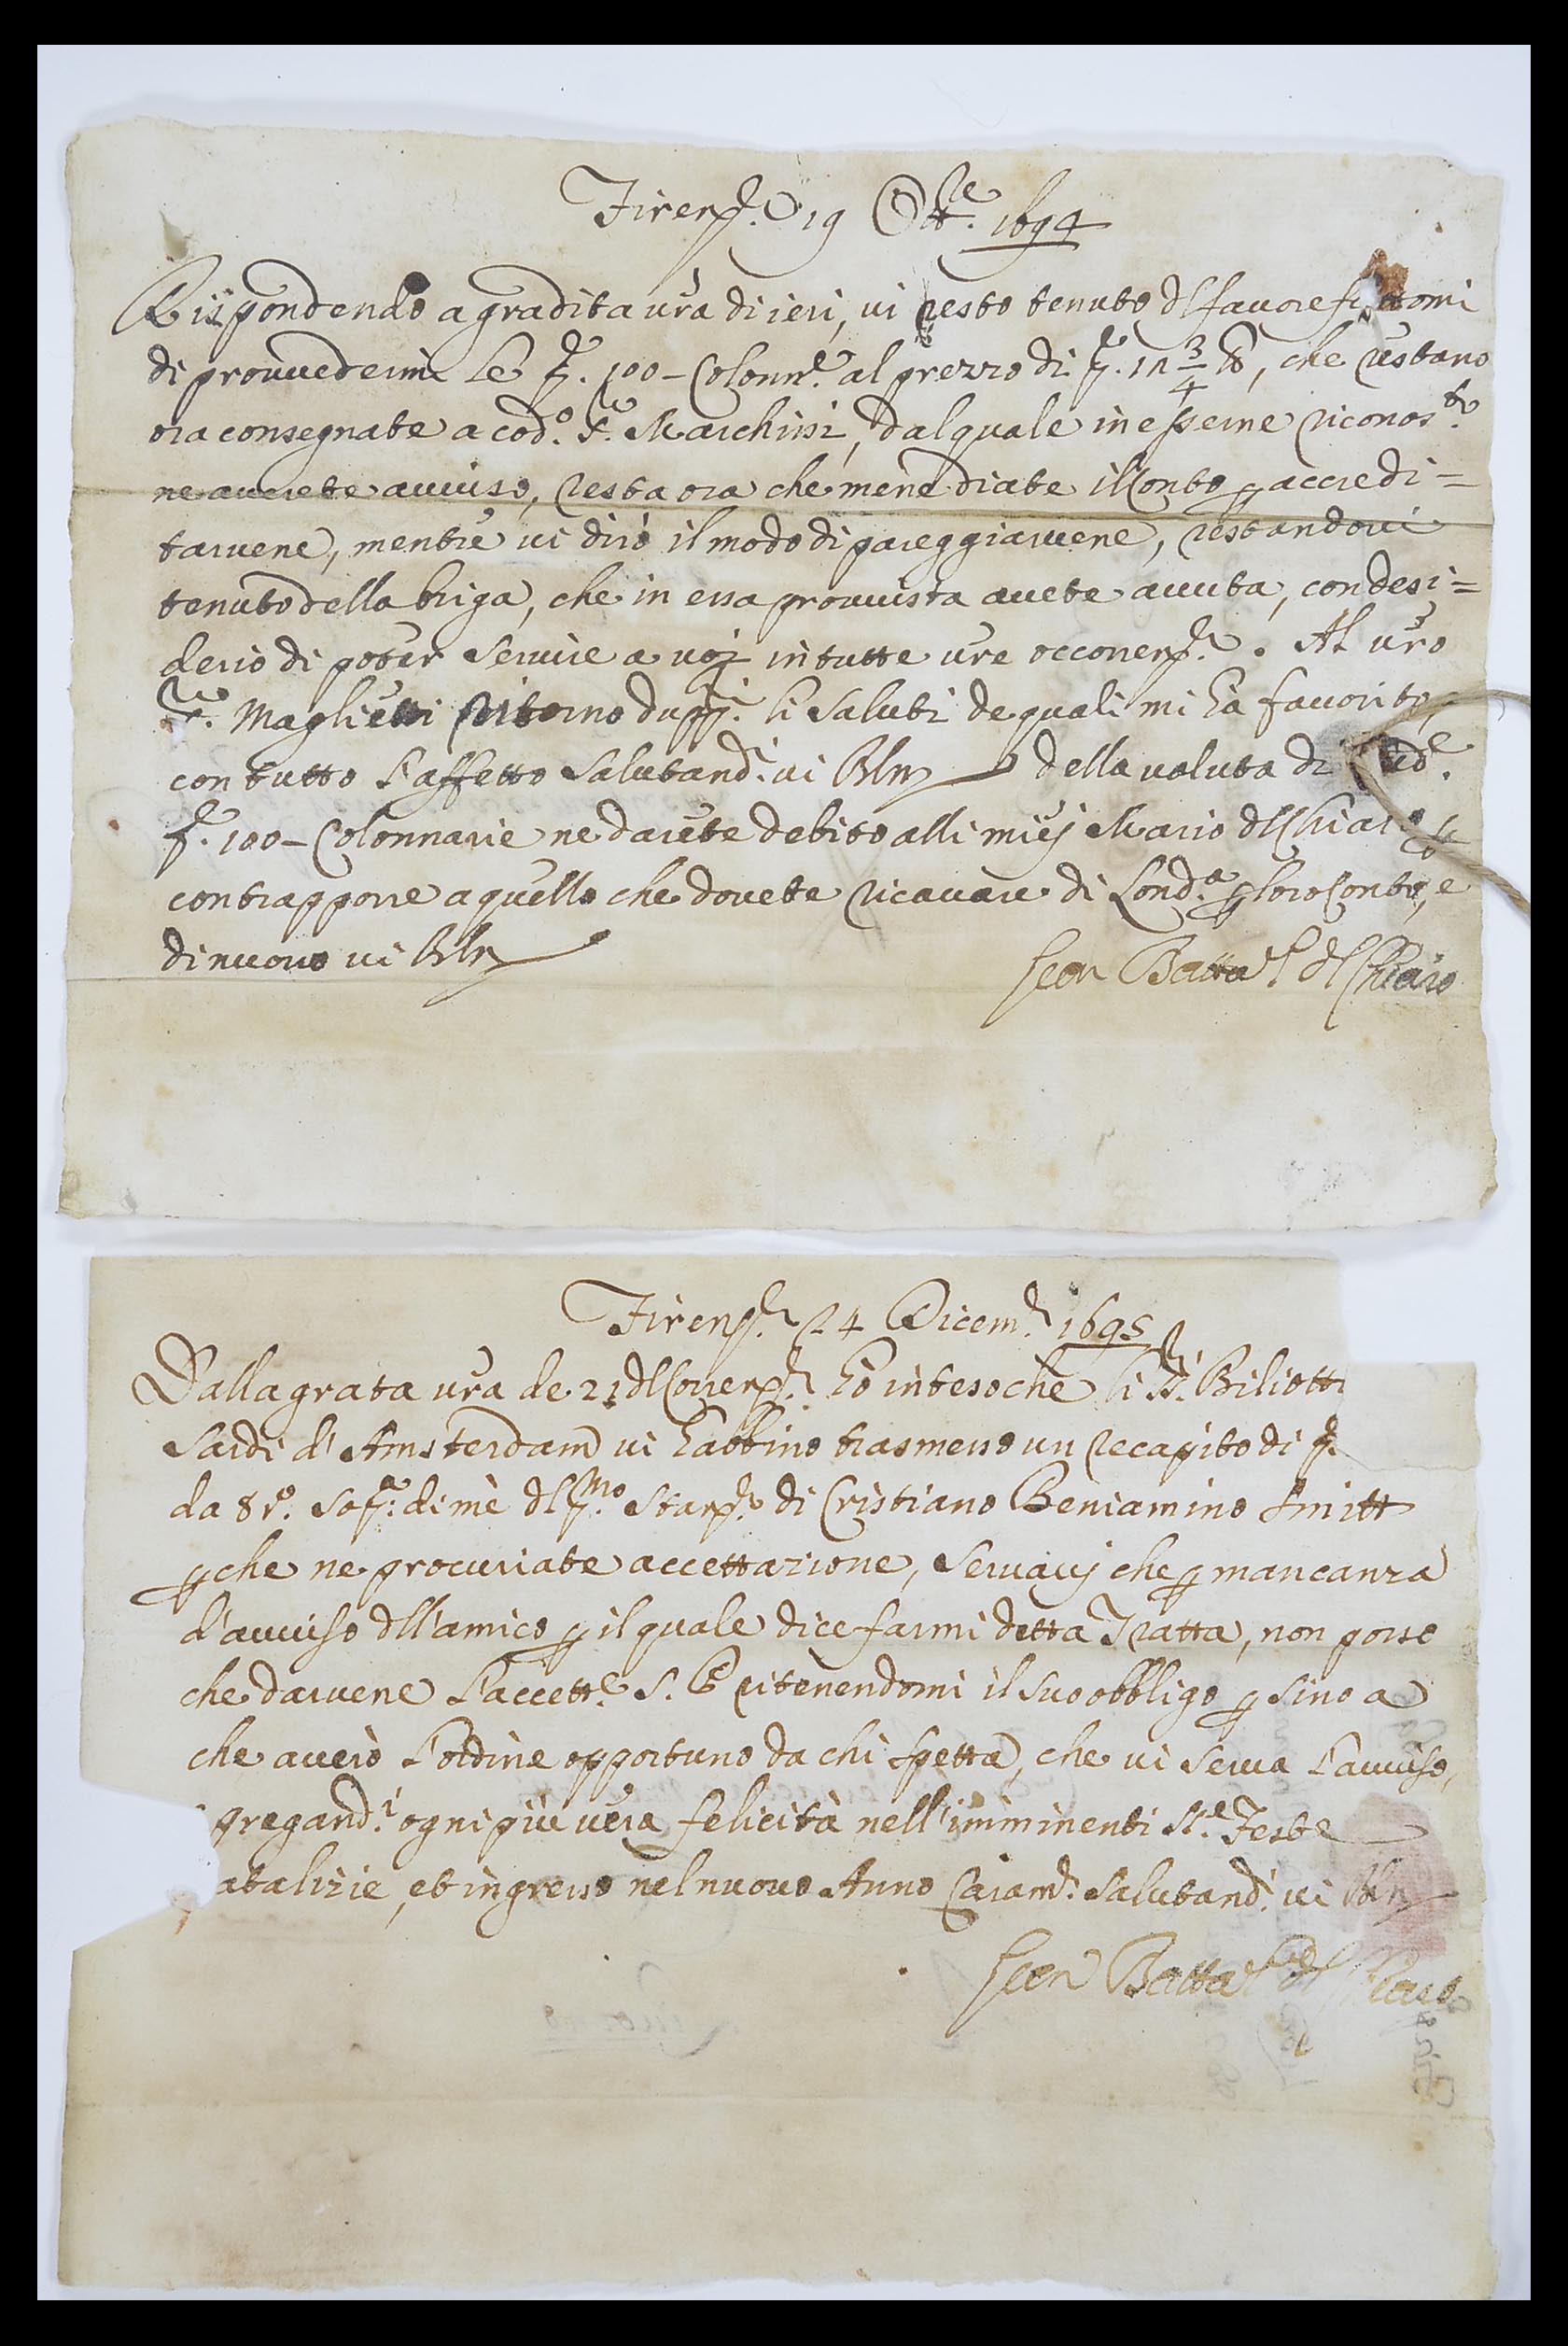 Firenze 19 Ott.re 1694
Rispondendo a gradita vra di ieri, vi resto tenuto dl favore
di provvedermi le p. 100 - Colonn.e al prezzo di p. 3/4, che restano
ora consegnate a cod.o S.r Marchisi, dal quale in esserne riconos.to
ne averete avviso, resta ora che mene diate il Conto p accredi=
tarvene, mentre vi dirò il modo di pareggiarvene, restandovi
tenuto della briga, che in essa provvista avete avuta, con desi=
derio di poter servire a voi in tutte vre occorenze. Al vro
S.r Maglietti ritorno dupp.i li saluti de quali mi hà favorito, e
con tutto l'affetto salutand.i vi Blm della valuta di
p. 100 - Colonnarie ne darete debito alli miej Mario dl Chiaro p
contrapporre a quello che dovete ricavare di Lond.a p loro Conto, e
di nuovo vi Blm
Gion Batta dl Chiaro
Firenze 24 Dicem.e 1695
Dalla grata vra de 21 dl Corrente hò inteso che li SS.ri Biliotti
Sardi d'Amsterdam vi habbino trasmesso un recapito di p.
da 8 r.i sop.a di mè dl p.mo Stante di Cristiano Beniamino Smitt
p che ne procuriate accettazione, servavj che p mancanza
d'avviso dll'amico p il quale dice farmi detta Tratta, non posso
che darvene l'accett.e S. P ritenendomi il suo obbligo p sino a
che averò l'ordine opportuno da chi spetta, che vi serva l'avviso,
pregand.i ogni più vera felicità nell'imminenti S.te Feste
atalizie, et ingresso nel nuovo Anno Caram.e salutand.i vi Blm
Gion Batta dl Chiaro